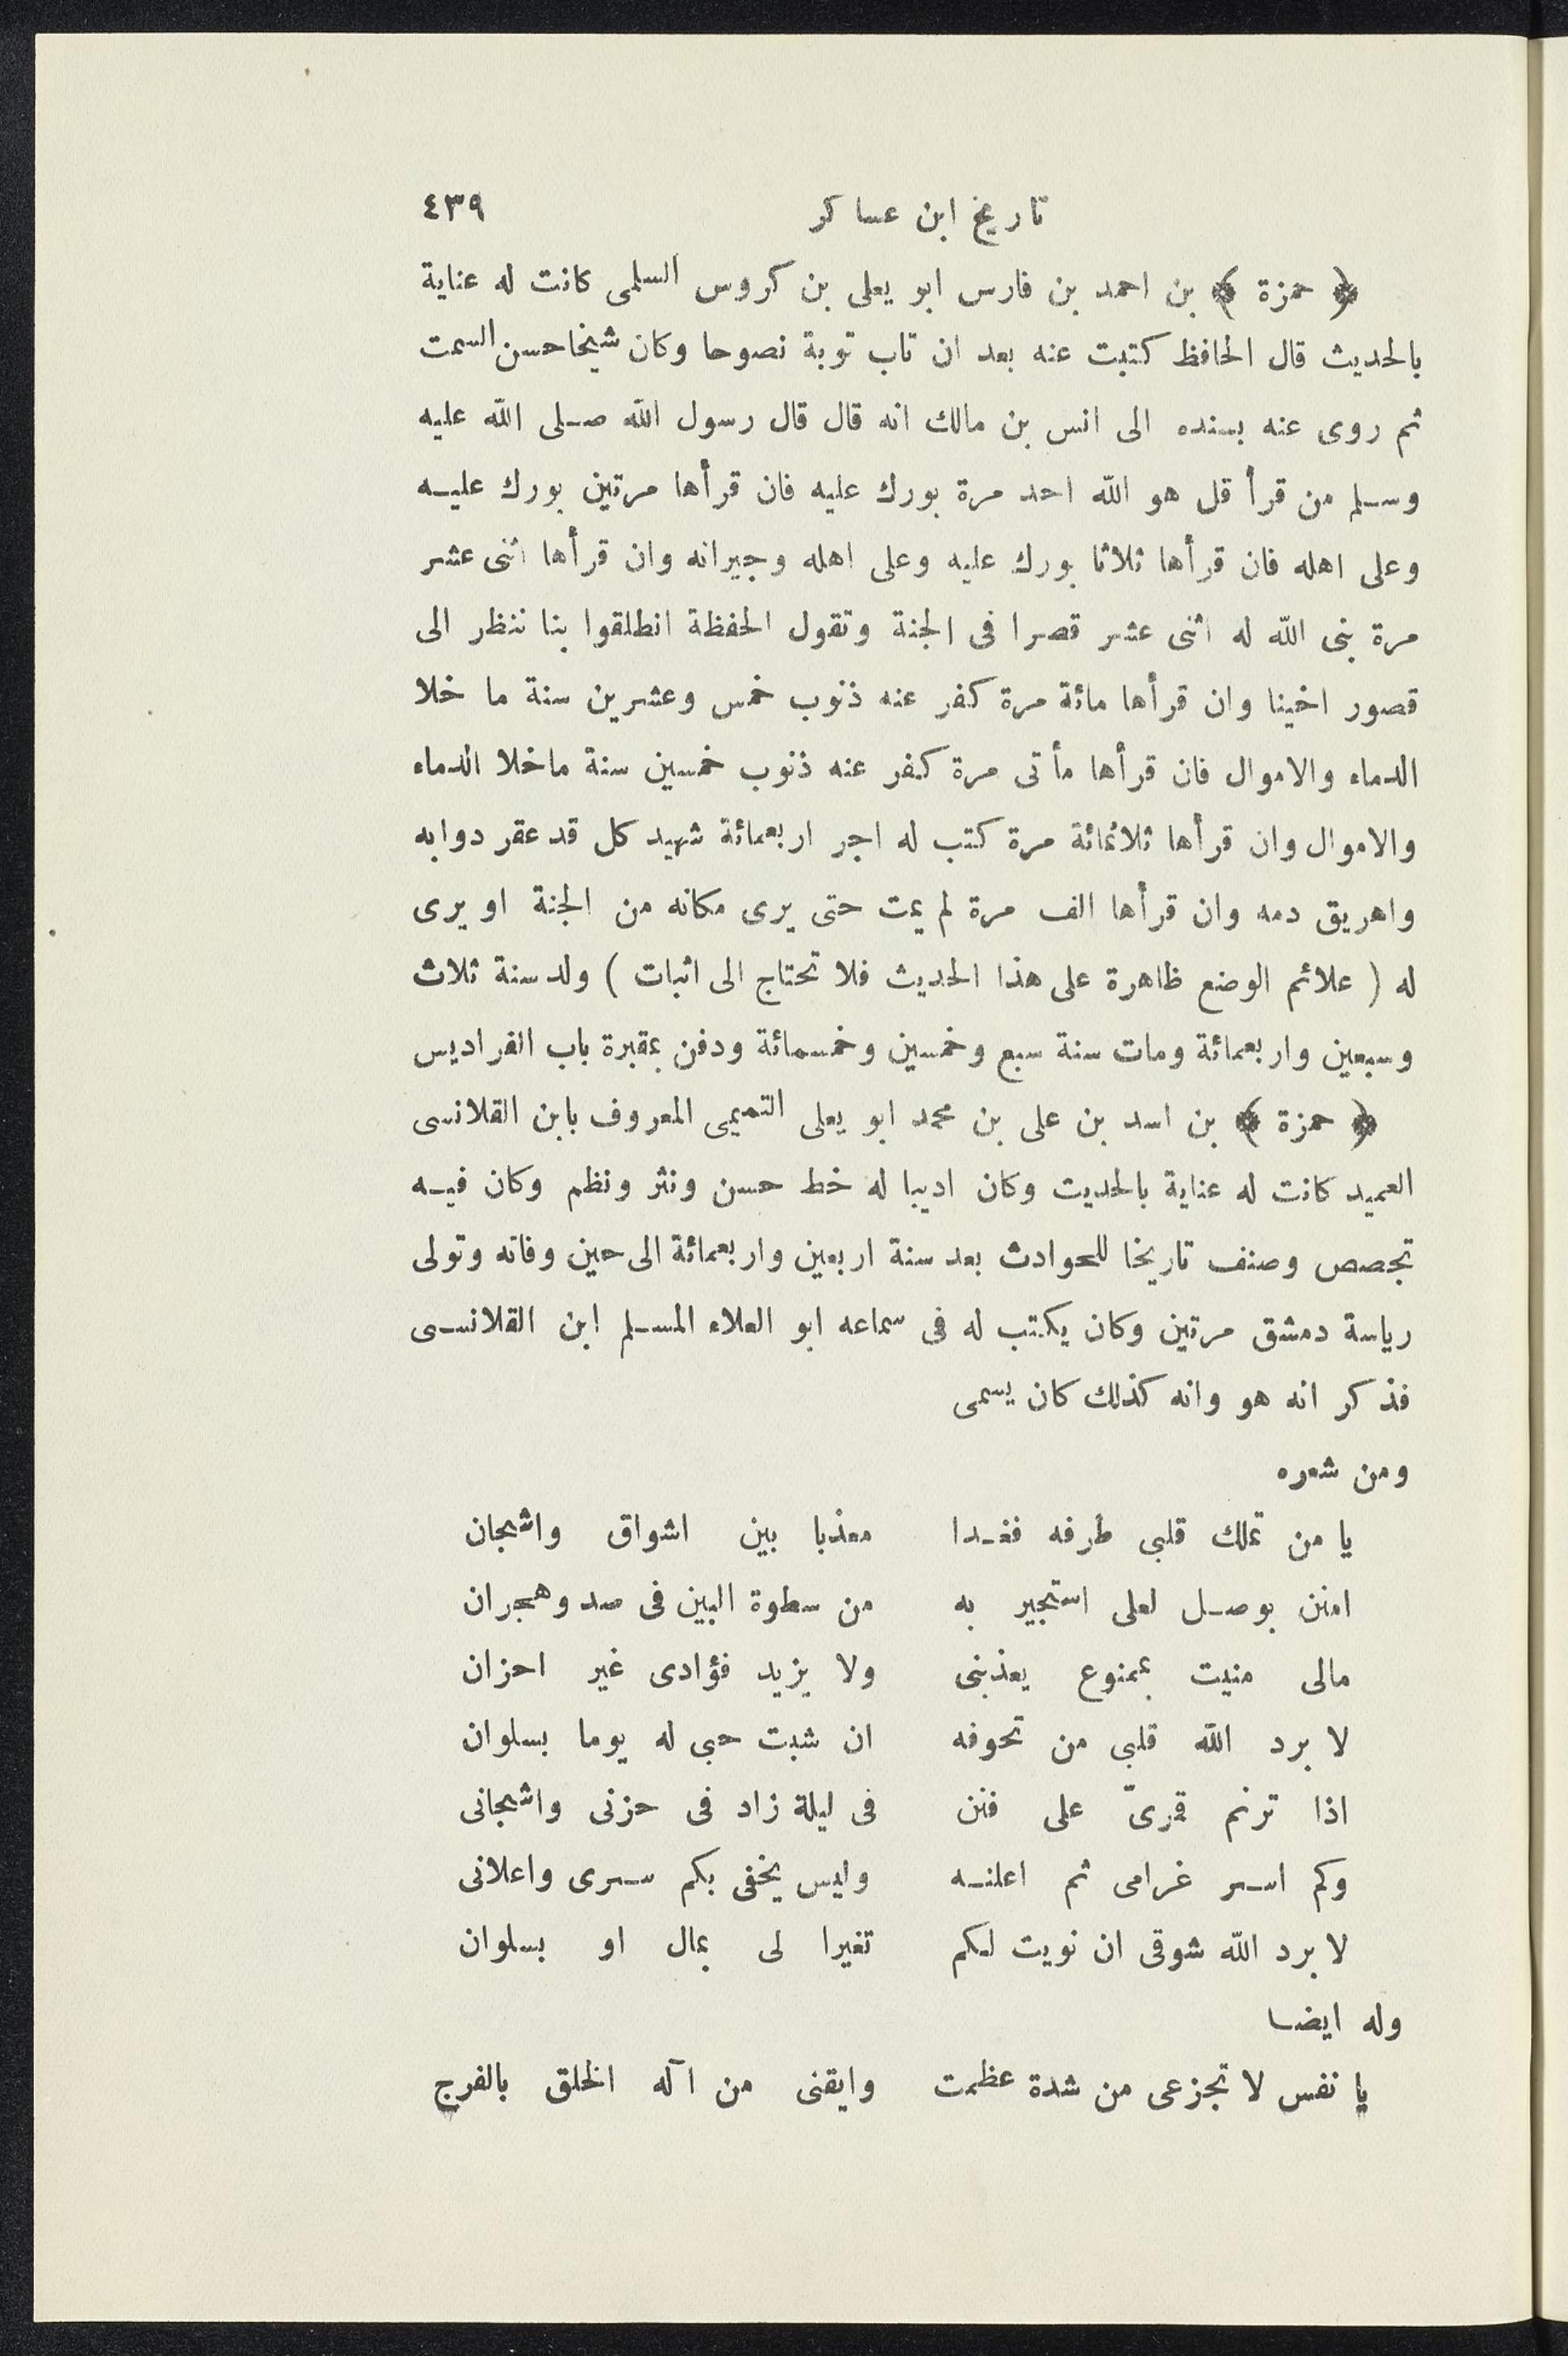 تاريخ ابن عساكر ٤٣٩
﴿ حمزة ﴾ بن احمد بن فارس ابو يعلى بن كروس السلمى كانت له عناية
بالحديث قال الحافظ كتبت عنه بعد ان تاب توبة نصوحا وكان شيخا حسن السمت
ثم روى عنه بسنده الى انس بن مالك انه قال قال رسول الله صلى الله عليه
وسلم من قرأ قل هو الله احد مرة بورك عليه فان قرأها مرتين بورك عليه
وعلى اهله فان قرأها ثلاثا بورك عليه وعلى اهله وجيرانه وان قرأها اثنى عشر
مرة بنى الله له اثنى عشر قصرا فى الجنة وتقول الحفظة انطلقوا بنا ننظر الى
قصور اخينا وان قرأها مائة مرة كفر عنه ذنوب خمس وعشرين سنة ما خلا
الدماء والاموال فان قرأها مأتى مرة كفر عنه ذنوب خمسين سنة ماخلا الدماء
والاموال وان قرأها ثلاثمائة مرة كتب له اجر اربعمائة شهيد كل قد عقر دوابه
واهريق دمه وان قرأها الف مرة لم يمت حتى يرى مكانه من الجنة او يرى
له ( علائم الوضع ظاهرة على هذا الحديث فلا تحتاج الى اثبات ) ولد سنة ثلاث
وسبعين واربعمائة ومات سنة سبع وخمسين وخمسمائة ودفن بمقبرة باب الفراديس
﴿ حمزة ﴾ بن اسد بن على بن محمد ابو يعلى التميمى المعروف بابن القلانسى
العميد كانت له عناية بالحديث وكان اديبا له خط حسن ونثر ونظم وكان فيه
تجصص وصنف تاريخا للحوادث بعد سنة اربعين واربعمائة الى حين وفاته وتولى
رياسة دمشق مرتين وكان يكتب له فى سماعه ابو العلاء المسلم ابن القلانسى
فذكر انه هو وانه كذلك كان يسمى
ومن شعره
يا من تملك قلبى طرفه فغدا معذبا بين اشواق واشجان
امنن بوصل لعلى استجير به من سطوة البين فى صد وهجران
مالى منيت بممنوع يعذبنى ولا يزيد فؤادى غير احزان
لا برد الله قلبى من تحوفه ان شبت حبى له يوما بسلوان
اذا ترنم قمرىّ على فنن فى ليلة زاد فى حزنى واشجانى
وكم اسر غرامى ثم اعلنه وليس يخفى بكم سرى واعلانى
لا برد الله شوقى ان نويت لكم تغيرا لى بمال او بسلوان
وله ايضا
يا نفس لا تجزعى من شدة عظمت وايقنى من آله الخلق بالفرج